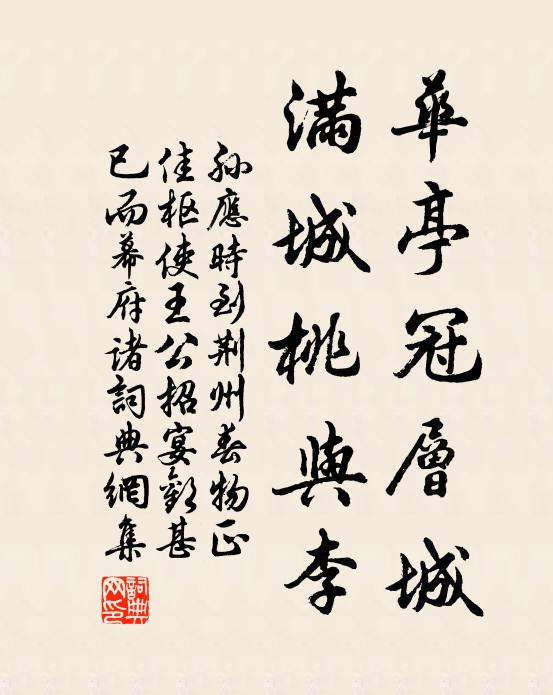 華亭冠層城
滿城桃與李
孫應時到荆州春物正
佳枢使王公招宴歡甚
已而幕府諸詞典網集
詞典網印